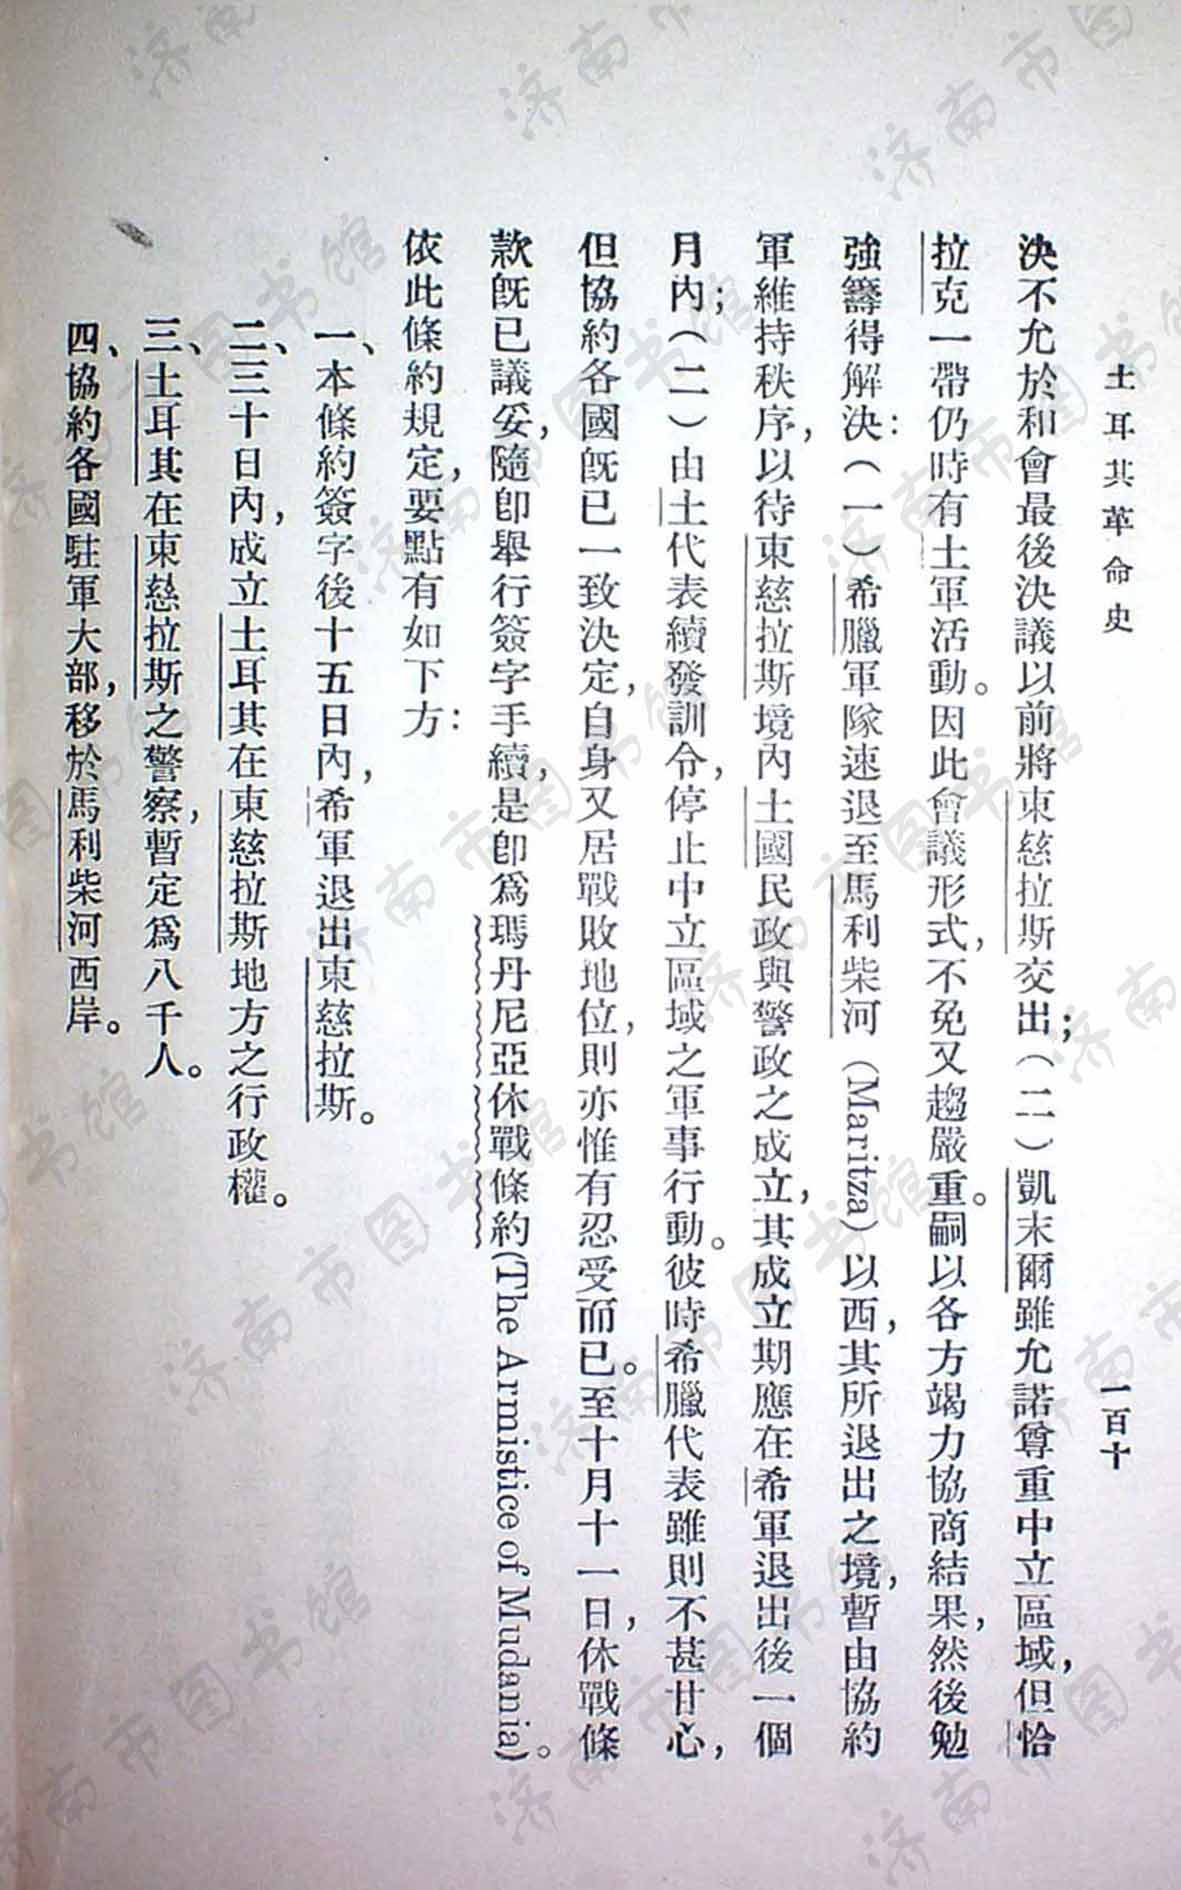 土耳其革命史
一百十
決不允於和會最後決議以前將東慈拉斯交出；（二）凱末爾雖允諾尊重中立區域，但恰
拉克一帶仍時有土軍活動。因此會議形式，不免又趨嚴重。嗣以各方竭力協商結果，然後勉
強籌得解決：（一）希臘軍隊速退至馬利柴河（Maritza）以西，其所退出之境，暫由協約
軍維持秩序，以待東慈拉斯境內土國民政與警政之成立，其成立期應在希軍退出後一個
月內；（二）由土代表續發訓令，停止中立區域之軍事行動。彼時希臘代表雖則不甚甘心，
但協約各國既已一致決定，自身又居戰敗地位，則亦惟有忍受而已。至十月十一日，休戰條
款既已議妥，隨卽舉行簽字手續，是卽爲瑪丹尼亞休戰條約(The Armistice of Mudania)。
依此條約規定，要點有如下方：
一、本條約簽字後十五日內，希軍退出東慈拉斯。
二、三十日內，成立土耳其在東慈拉斯地方之行政權。
三、土耳其在東慈拉斯之警察，暫定爲八千人。
四、協約各國駐軍大部，移於馬利柴河西岸。
济南市图书馆